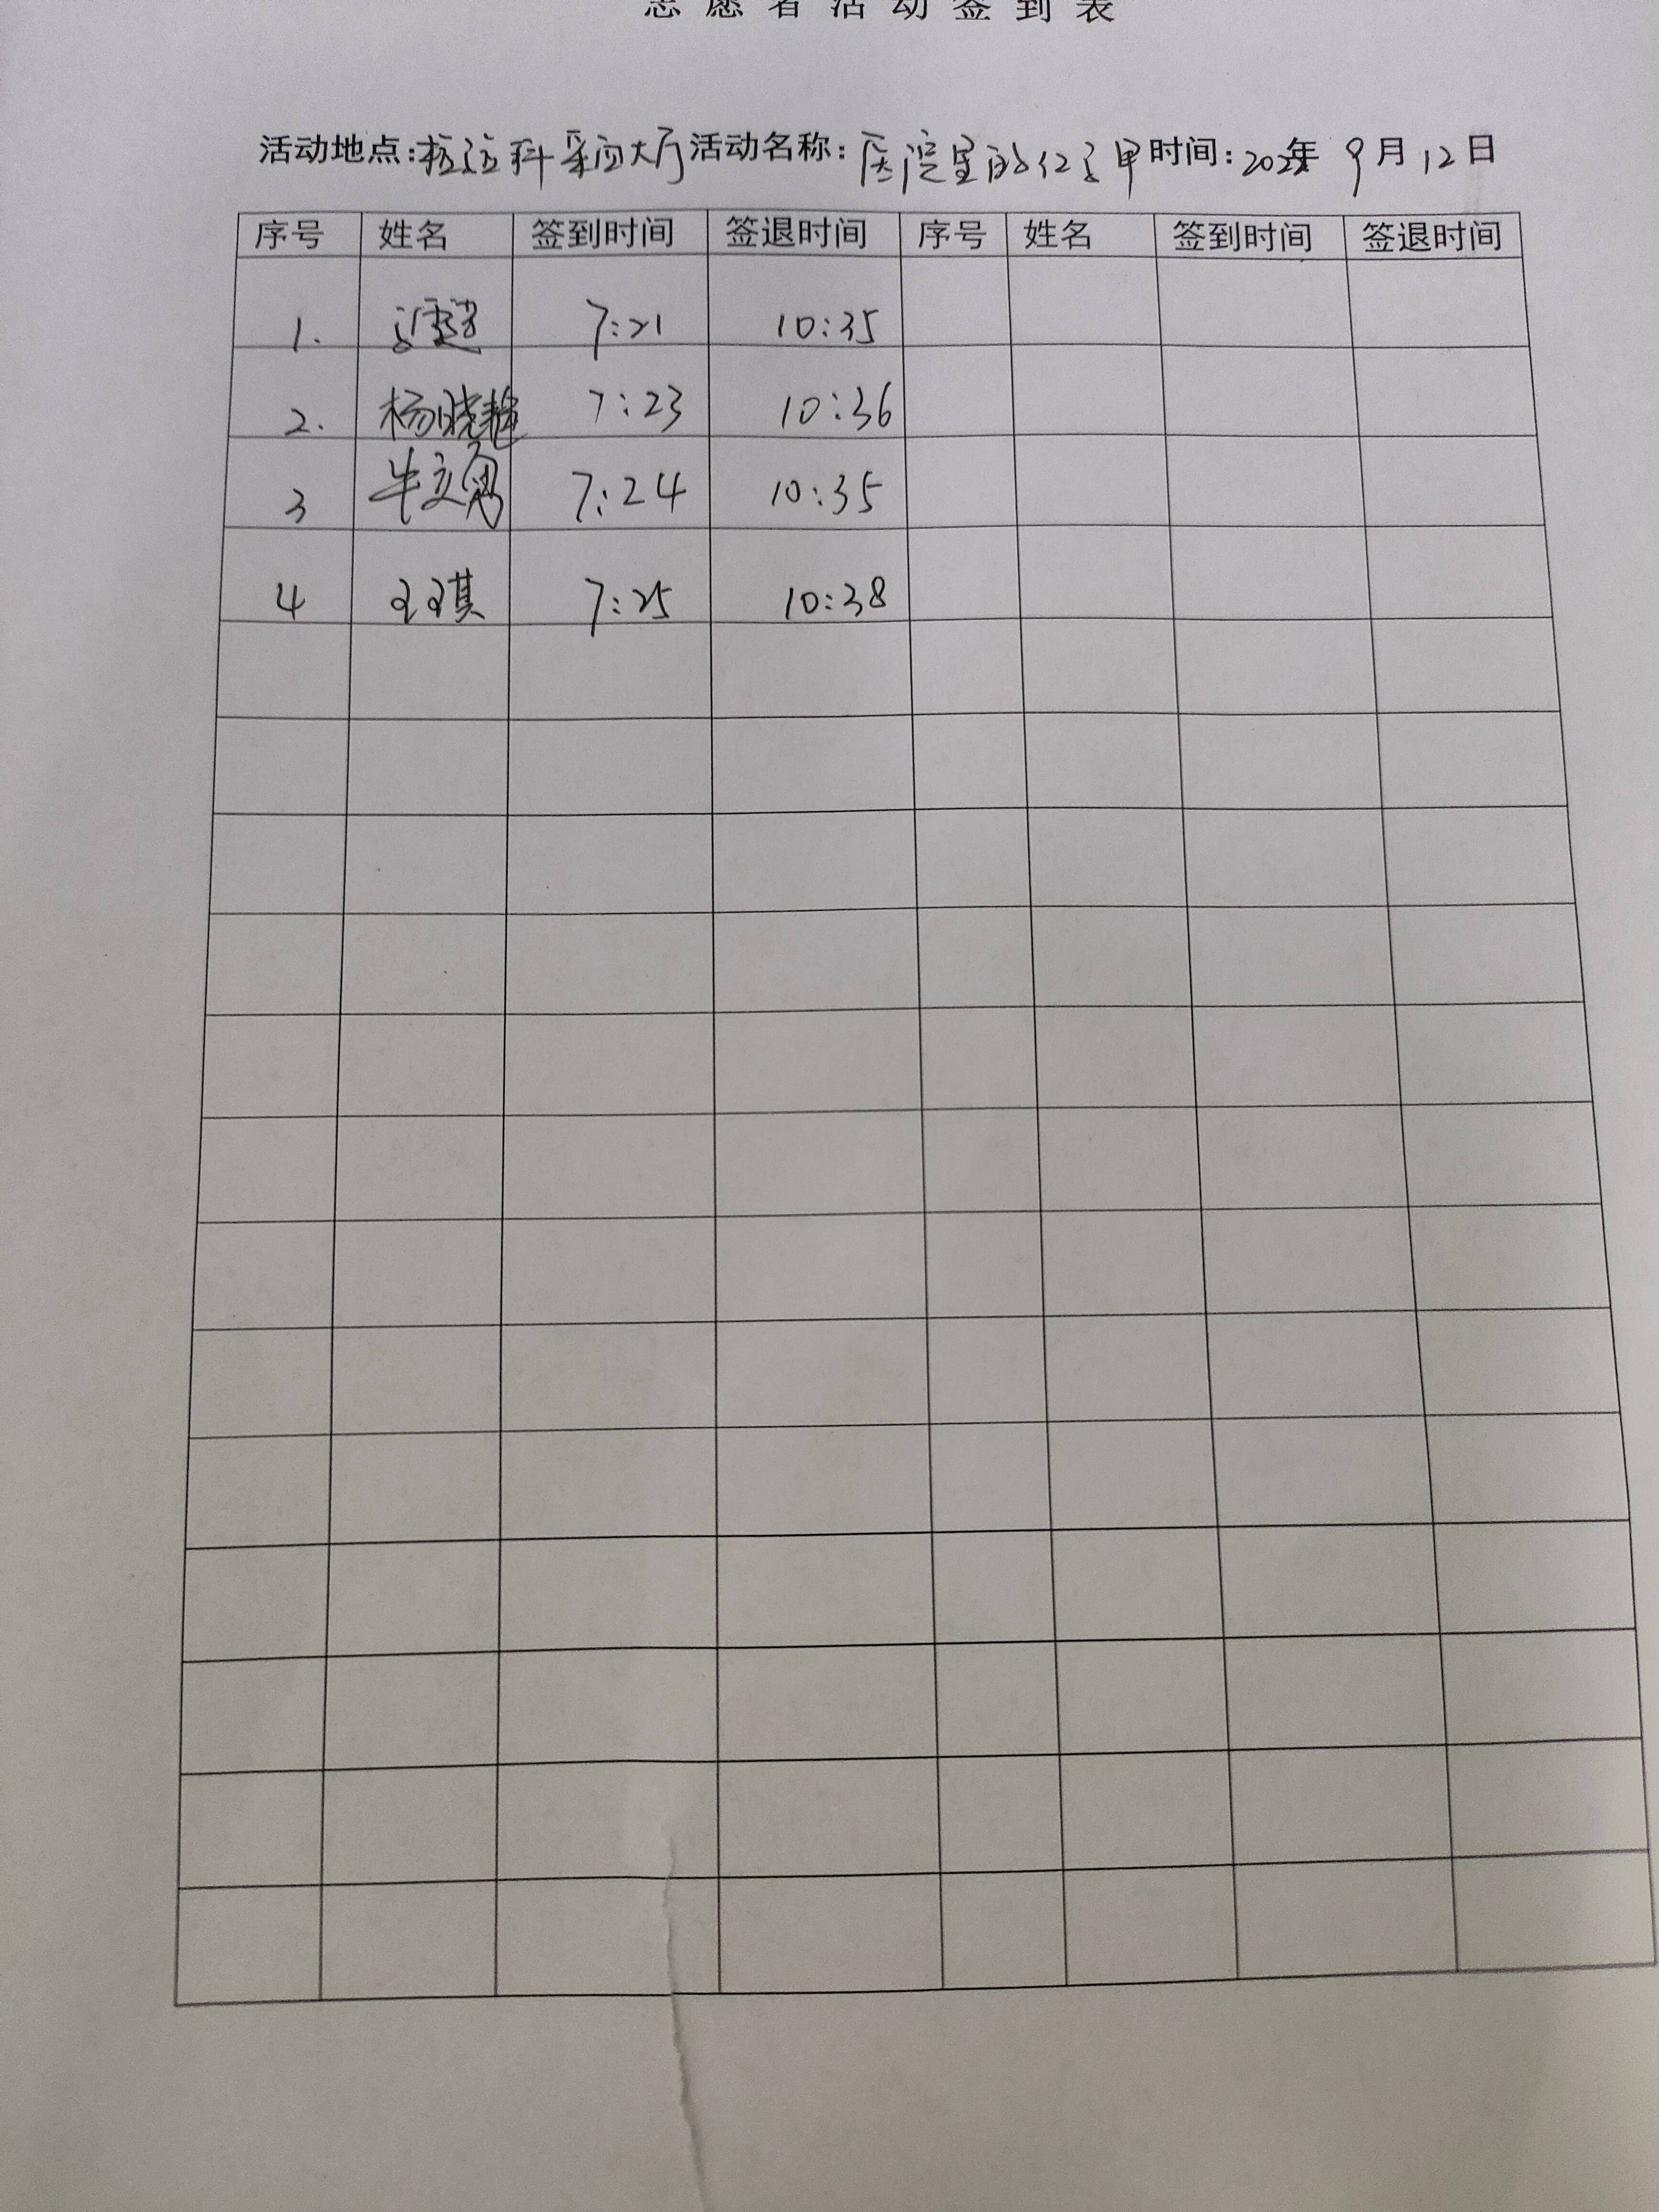 志愿者活动签到表
活动地点:检验科采血大厅 活动名称:医院里的红马甲 时间:202 年 9月12日
序号 姓名 签到时间 签退时间 序号 姓名 签到时间 签退时间
1. 7:21 10:35
2. 杨晓 7:23 10:36
3 牛文 7:24 10:35
4 王琪 7:25 10:38